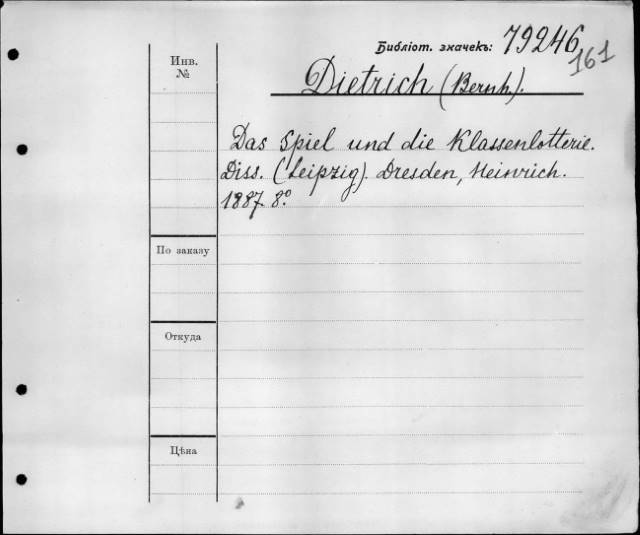 Библіот. значекъ: 79246
161
Инв.
№
Dietrich (Bernh.).
Das Spiel und die Klassenlotterie.
Diss. (Leipzig). Dresden, Heinrich.
1887. 8°.
По заказу
Откуда
Цѣна